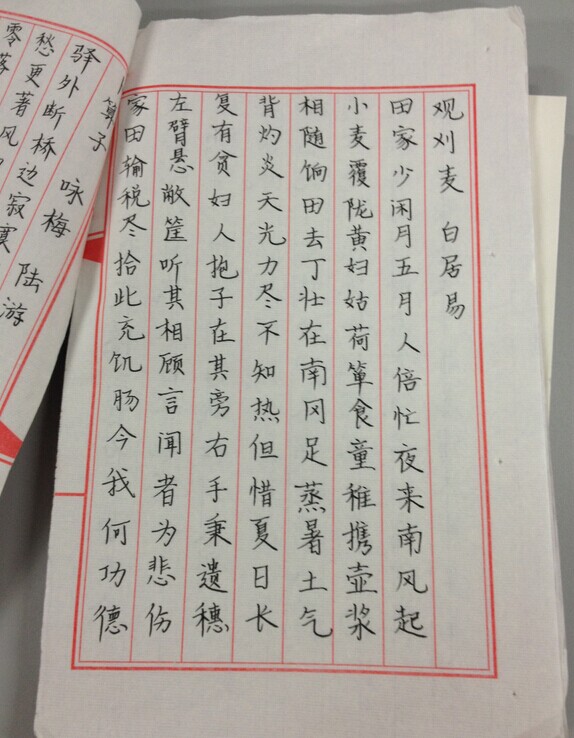 算子 咏梅 陆游
驿外断桥边寂寞
愁更著风
零落
观刈麦 白居易
田家少闲月五月人倍忙夜来南风起
小麦覆陇黄妇姑荷箪食童稚携壶浆
相随饷田去丁壮在南冈足蒸暑土气
背灼炎天光力尽不知热但惜夏日长
复有贫妇人抱子在其旁右手秉遗穗
左臂悬敝筐听其相顾言闻者为悲伤
家田输税尽拾此充饥肠今我何功德